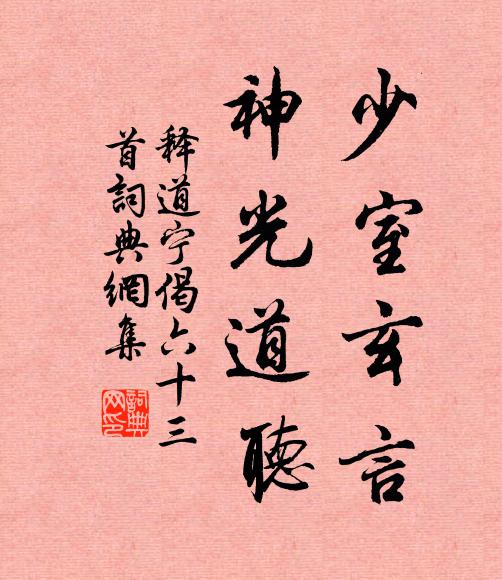 少室玄言
神光道聽
释道宁偈六十三
首詞典網集
詞典
网印